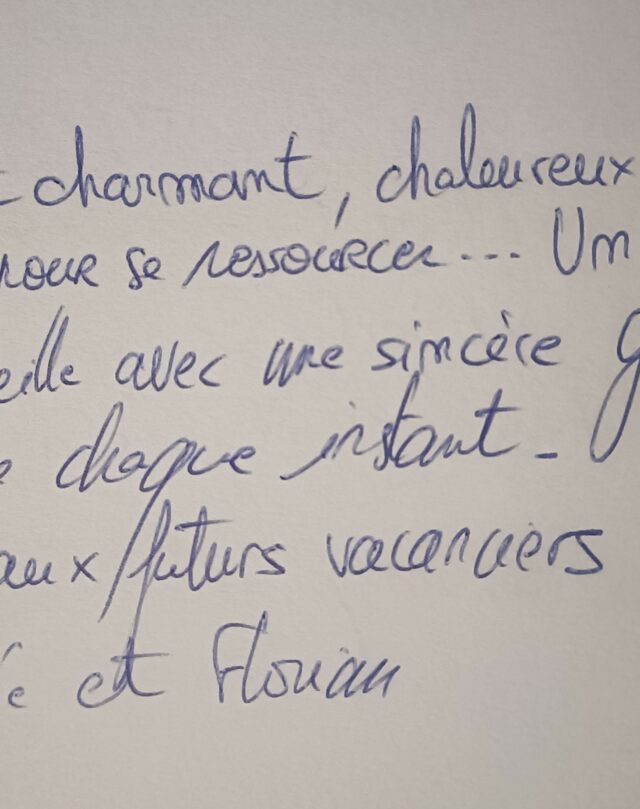 charmant, chaleureux
pour se ressourcer... Un
eille avec une sincère
chaque instant -
aux futurs vacanciers
et Florian